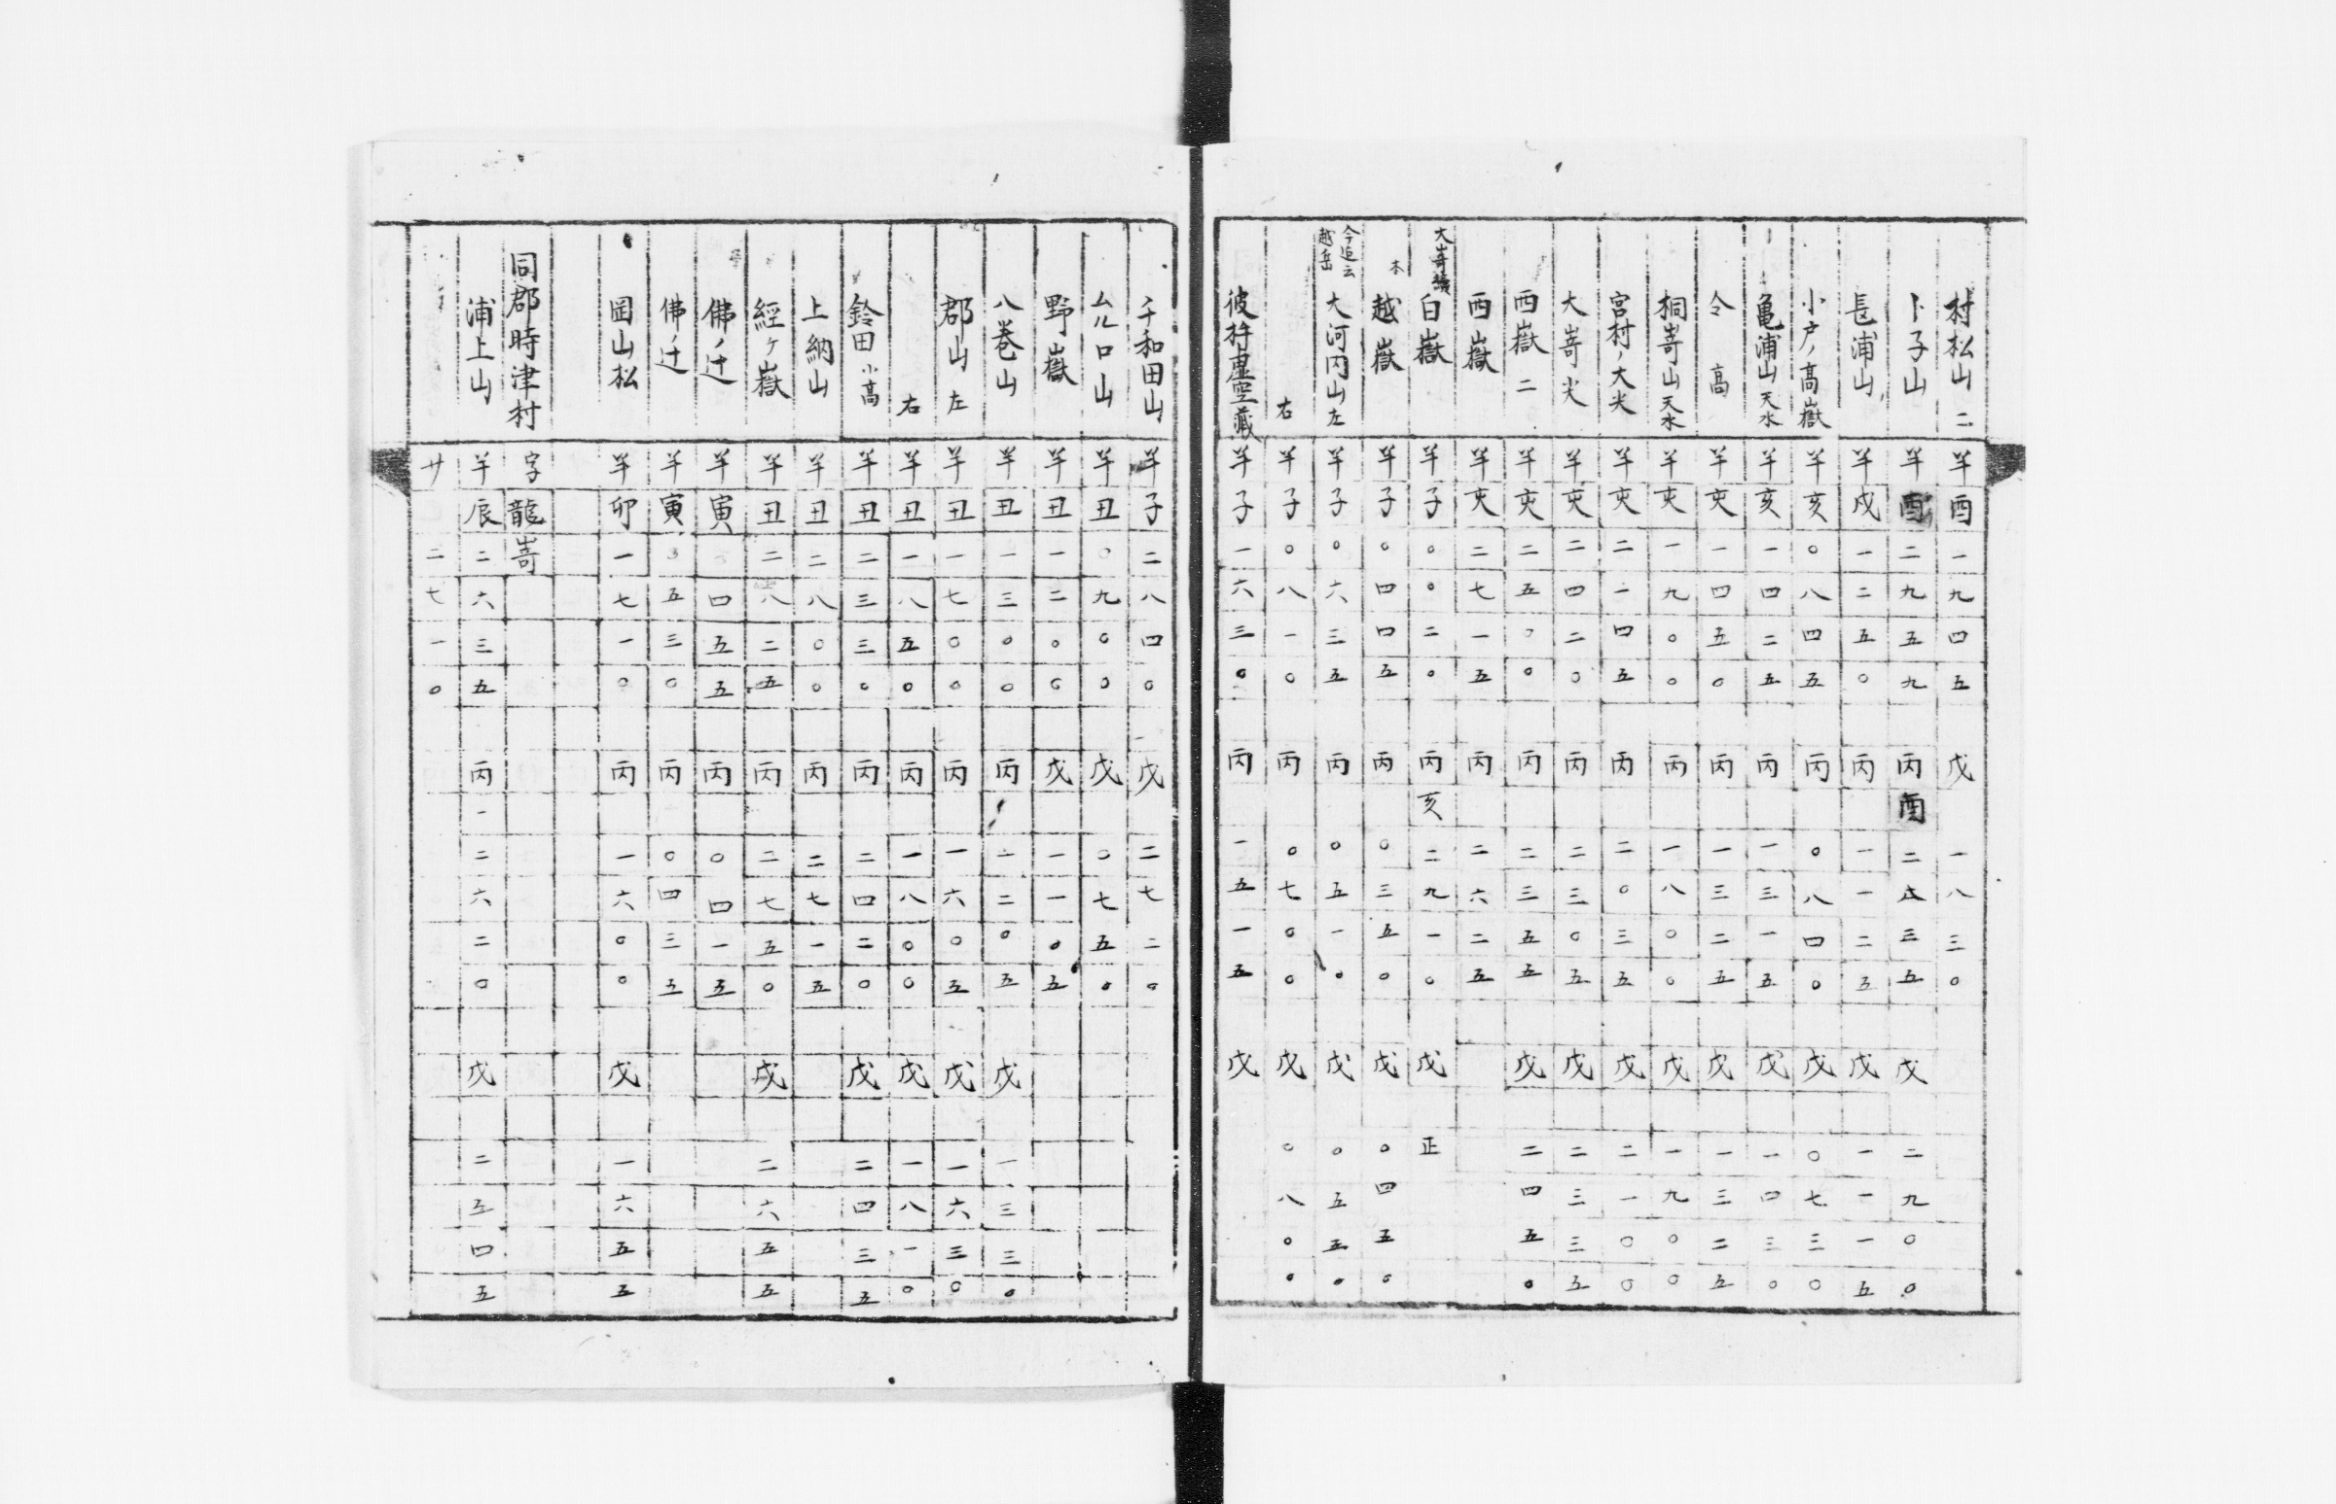 村松山二 半 酉 一九四五 戊 一八三〇
卜子山 半 酉 二九五九 丙 酉 二八三五 戊 二九〇〇
長浦山 半 戌 一二五〇 丙 一一二五 戊 一一一五
小戸ノ高嶽 半 亥 〇八四五 丙 〇八四〇 戊 〇七三〇
亀浦山天水 半 亥 一四二五 丙 一三一五 戊 一四三〇
仝高 半 亥 一四五〇 丙 一三二五 戊 一三二五
桐嵜山天水 半 亥 一九〇〇 丙 一八〇〇 戊 一九〇〇
宮村ノ大尖 半 亥 二一四五 丙 二〇三五 戊 二一〇〇
大嵜尖 半 亥 二四二〇 丙 二三〇五 戊 二三三五
西嶽二 半 亥 二五〇〇 丙 二三五五 戊 二四五〇
西嶽 半 亥 二七一五 丙 二六二五
大嵜續
白嶽 半 子 〇〇二〇 丙 亥 二九一〇 戊 正
木
越嶽 半 子 〇四四五 丙 〇三五〇 戊 〇四五〇
今近云
越岳
大河内山左 半 子 〇六三五 丙 〇五一〇 戊 〇五五〇
右 半 子 〇八一〇 丙 〇七〇〇 戊 〇八〇〇
彼杵虚空蔵 半 子 一六三〇 丙 一五一五 戊
千和田山 半 子 二八四〇 戊 二七二〇
ムル口山 半 丑 〇九〇〇 戊 〇七五〇
野嶽 半 丑 一二〇〇 戊 一一〇五
八巻山 半 丑 一三〇〇 丙 一二〇五 戊 一三三〇
郡山左 半 丑 一七〇〇 丙 一六〇五 戊 一六三〇
右 半 丑 一八五〇 丙 一八〇〇 戊 一八一〇
鈴田小高 半 丑 二三三〇 丙 二四二〇 戊 二四三五
上納山 半 丑 二八〇〇 丙 二七一五
經ヶ嶽 半 丑 二八二五 丙 二七五〇 戊 二六五五
佛ノ辻 半 寅 四五五 丙 〇四一五
佛ノ辻 半 寅 〇五三〇 丙 〇四三五
岡山松 半 卯 一七一〇 丙 一六〇〇 戊 一六五五
同郡時津村 字龍嵜
浦上山 半 辰 二六三五 丙 二六二〇 戊 二五四五
サ 二七一〇